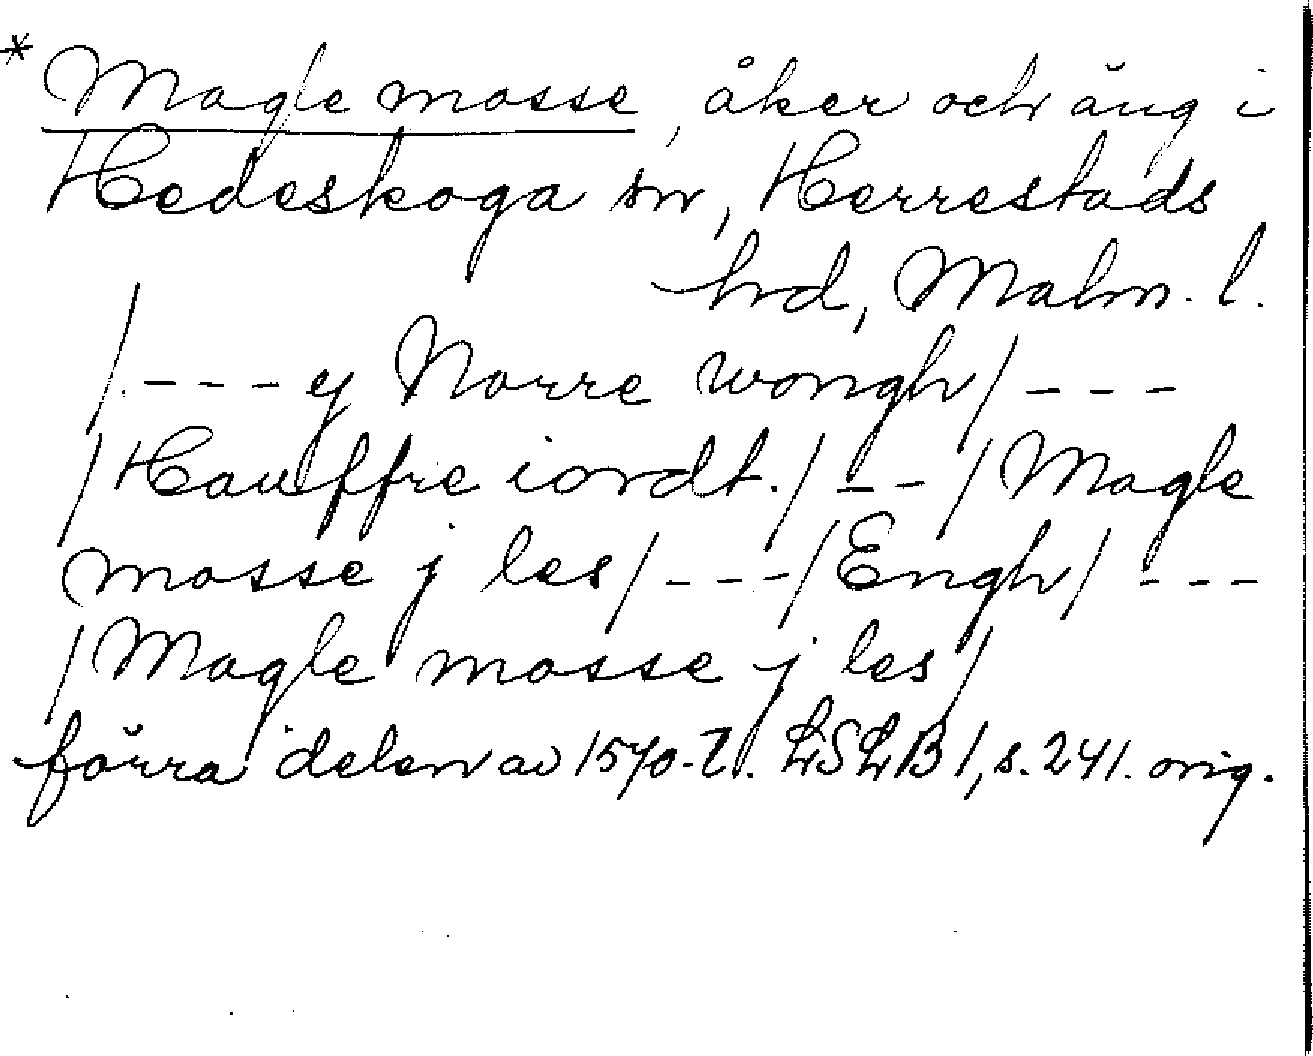 * Magle mosse, åker och äng i
Hedeskoga sn, Herrestads
hrd, Malm. l.
/. - - - ej Norre wongh / - - -
/ Hauffre iordt. / - - / Magle
mosse j les / - - - / Engh / - - -
/ Magle mosse j les /
förra delen av 1570-t. LSLB 1, s. 241. orig.